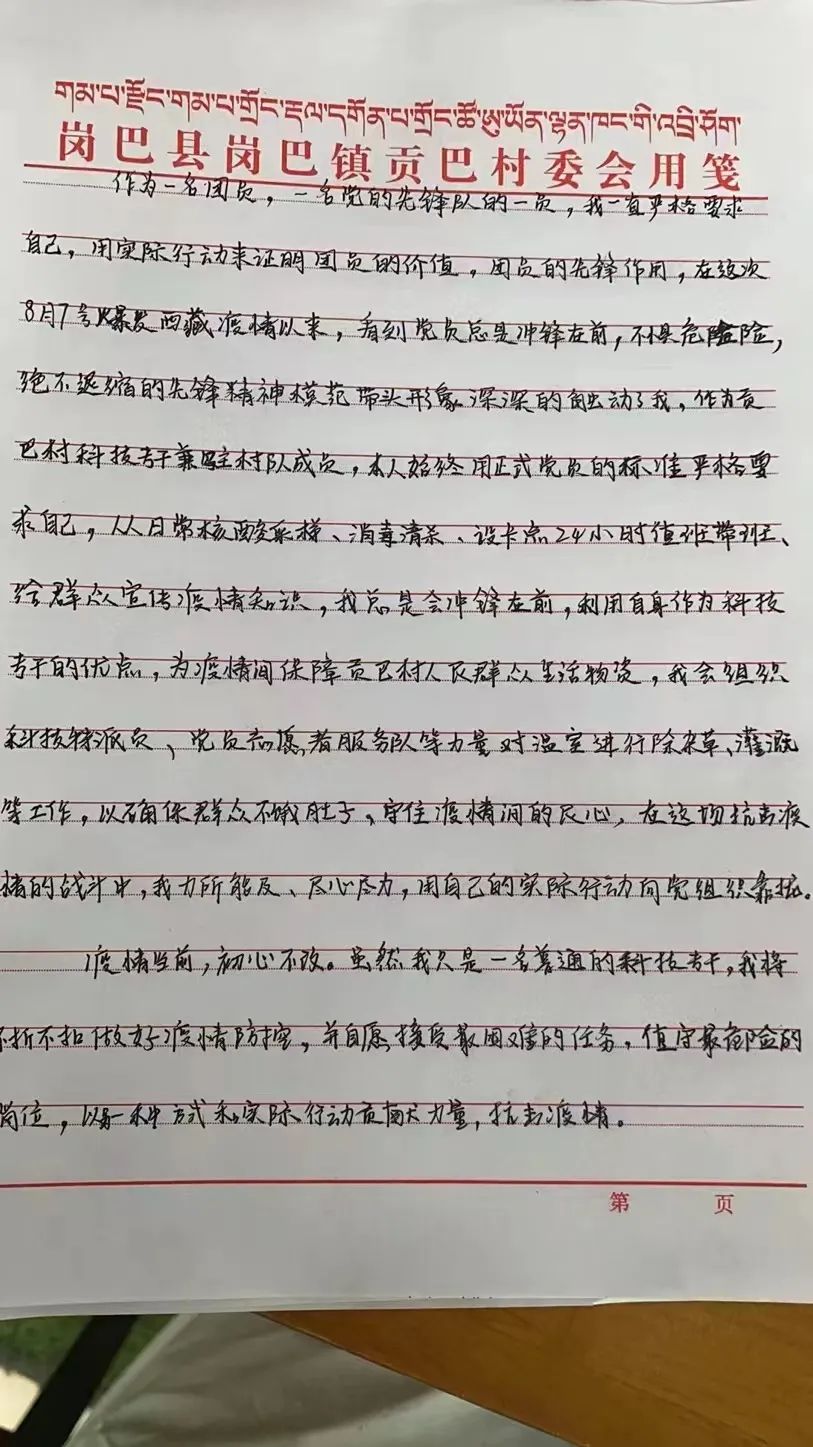 གམ་པ་རྫོང་གམ་པ་གྲོང་རྡལ་དགོན་པ་གྲོང་ཚོ་ཨུ་ཡོན་ལྷན་ཁང་གི་འབྲི་ཤོག།
岗巴县岗巴镇贡巴村委会用笺
作为一名团员，一名党的先锋队的一员，我一直严格要求
自己，用实际行动来证明团员的价值，团员的先锋作用，在这次
8月7号爆发西藏疫情以来，看到党员总是冲锋在前，不惧危险，
绝不退缩的先锋精神模范带头形象深深的触动了我，作为贡
巴村科技专干兼驻村队成员，本人始终用正式党员的标准严格要
求自己，从日常核酸采样、消毒清杀、设卡点24小时值班带班、
给群众宣传疫情知识，我总是会冲锋在前，利用自身作为科技
专干的优点，为疫情间保障贡巴村人民群众生活物资，我会组织
科技特派员、党员志愿者服务队等力量对温室进行除杂草、灌溉
等工作，以确保群众不饿肚子、守住疫情间的民心，在这场抗击疫
情的战斗中，我力所能及、尽心尽力，用自己的实际行动向党组织靠拢。
疫情当前，初心不改。虽然我只是一名普通的科技专干，我将
不折不扣做好疫情防控，并自愿接受最困难的任务，值守最危险的
岗位，以另一种方式和实际行动贡献力量，抗击疫情。
第 页